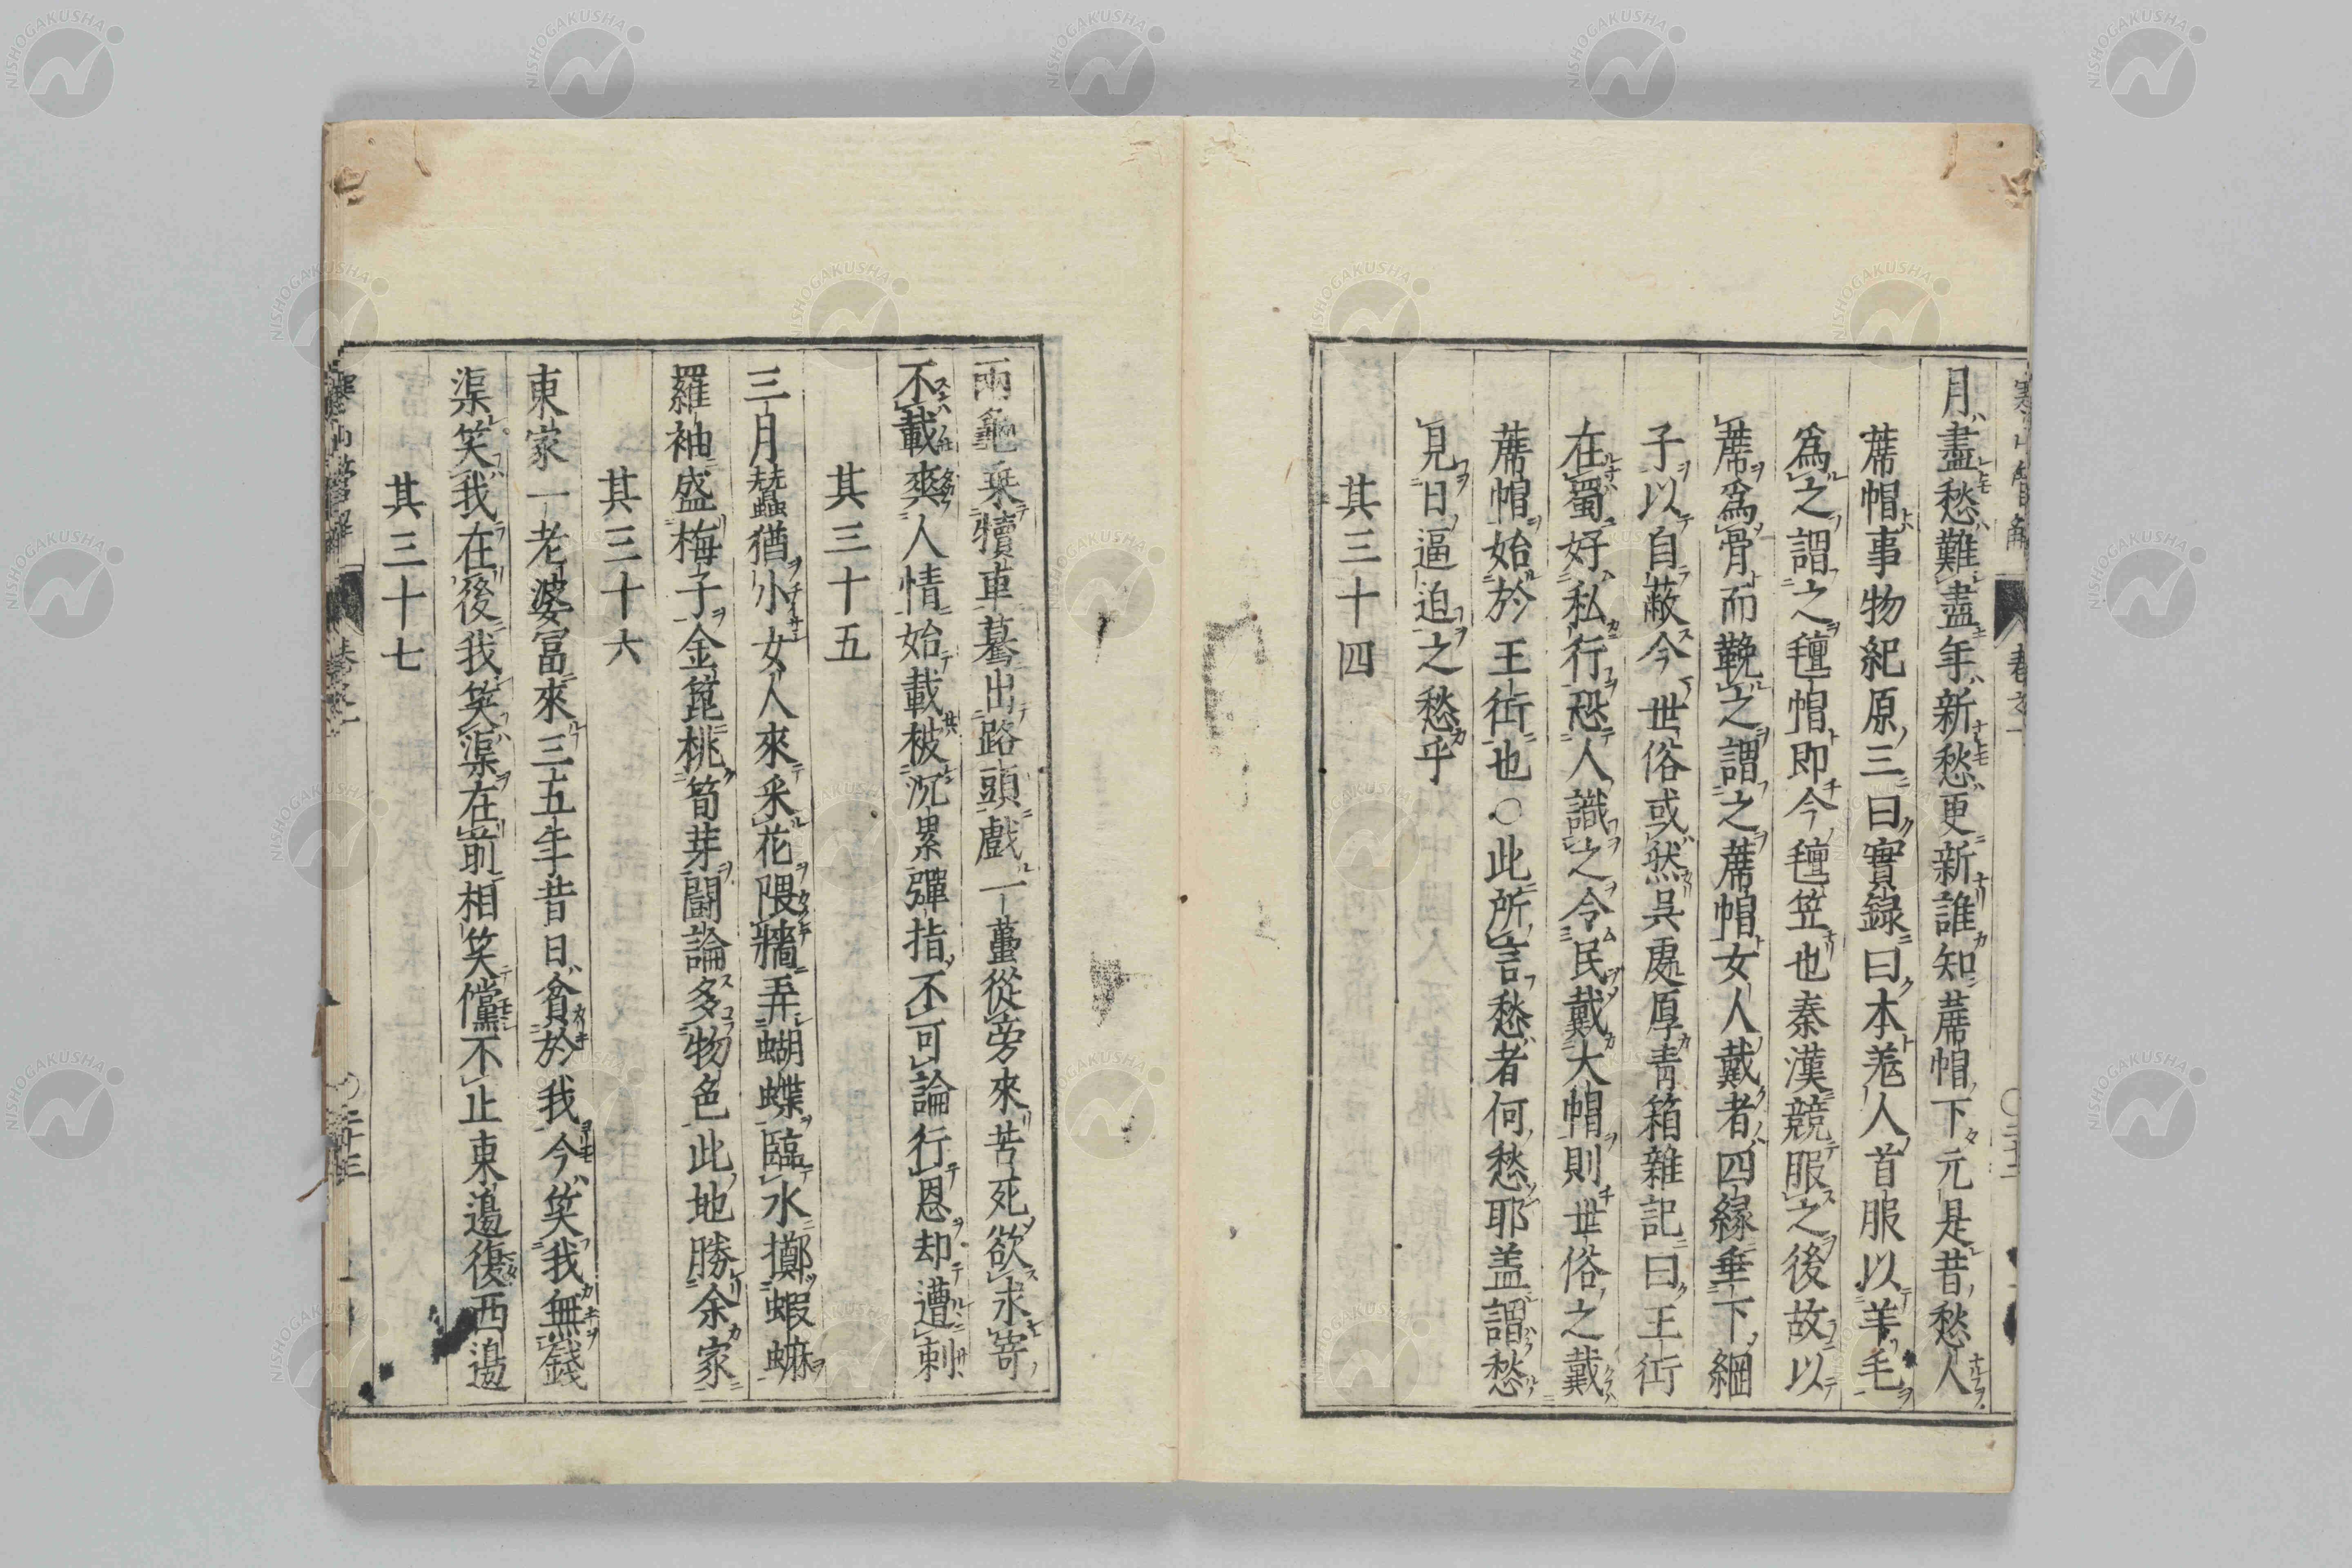 月盡愁難盡年新愁更新誰知蓆帽下元是昔愁人
蓆帽事物紀原三曰實錄曰本羌人首服以羊毛
爲之謂之氊帽即今氊笠也秦漢競服之後故以
蓆爲骨而鞔之謂之蓆帽女人戴者四緣垂下網
子以自蔽今世俗或然吳處厚靑箱雜記曰王衍
在蜀好私行恐人識之令民戴大帽則世俗之戴
蓆帽始於王衍也○此所言愁者何愁耶盖謂愁
見日逼迫之愁乎
其三十四
兩龜乗犢車驀出路頭戲一蠆從旁來苦死欲求寄
不載爽人情始載被沉累彈指不可論行恩却遭刺
其三十五
三月蠶猶小女人來釆花隈牆弄蝴蝶臨水擲蝦蟆
羅袖盛梅子金篦挑筍芽鬪論多物色此地勝余家
其三十六
東家一老婆冨來三五年昔日貧於我今笑我無錢
渠笑我在後我笑渠在前相笑儻不止東邉復西邉
其三十七
卷之一
NISHOGAKUSHA